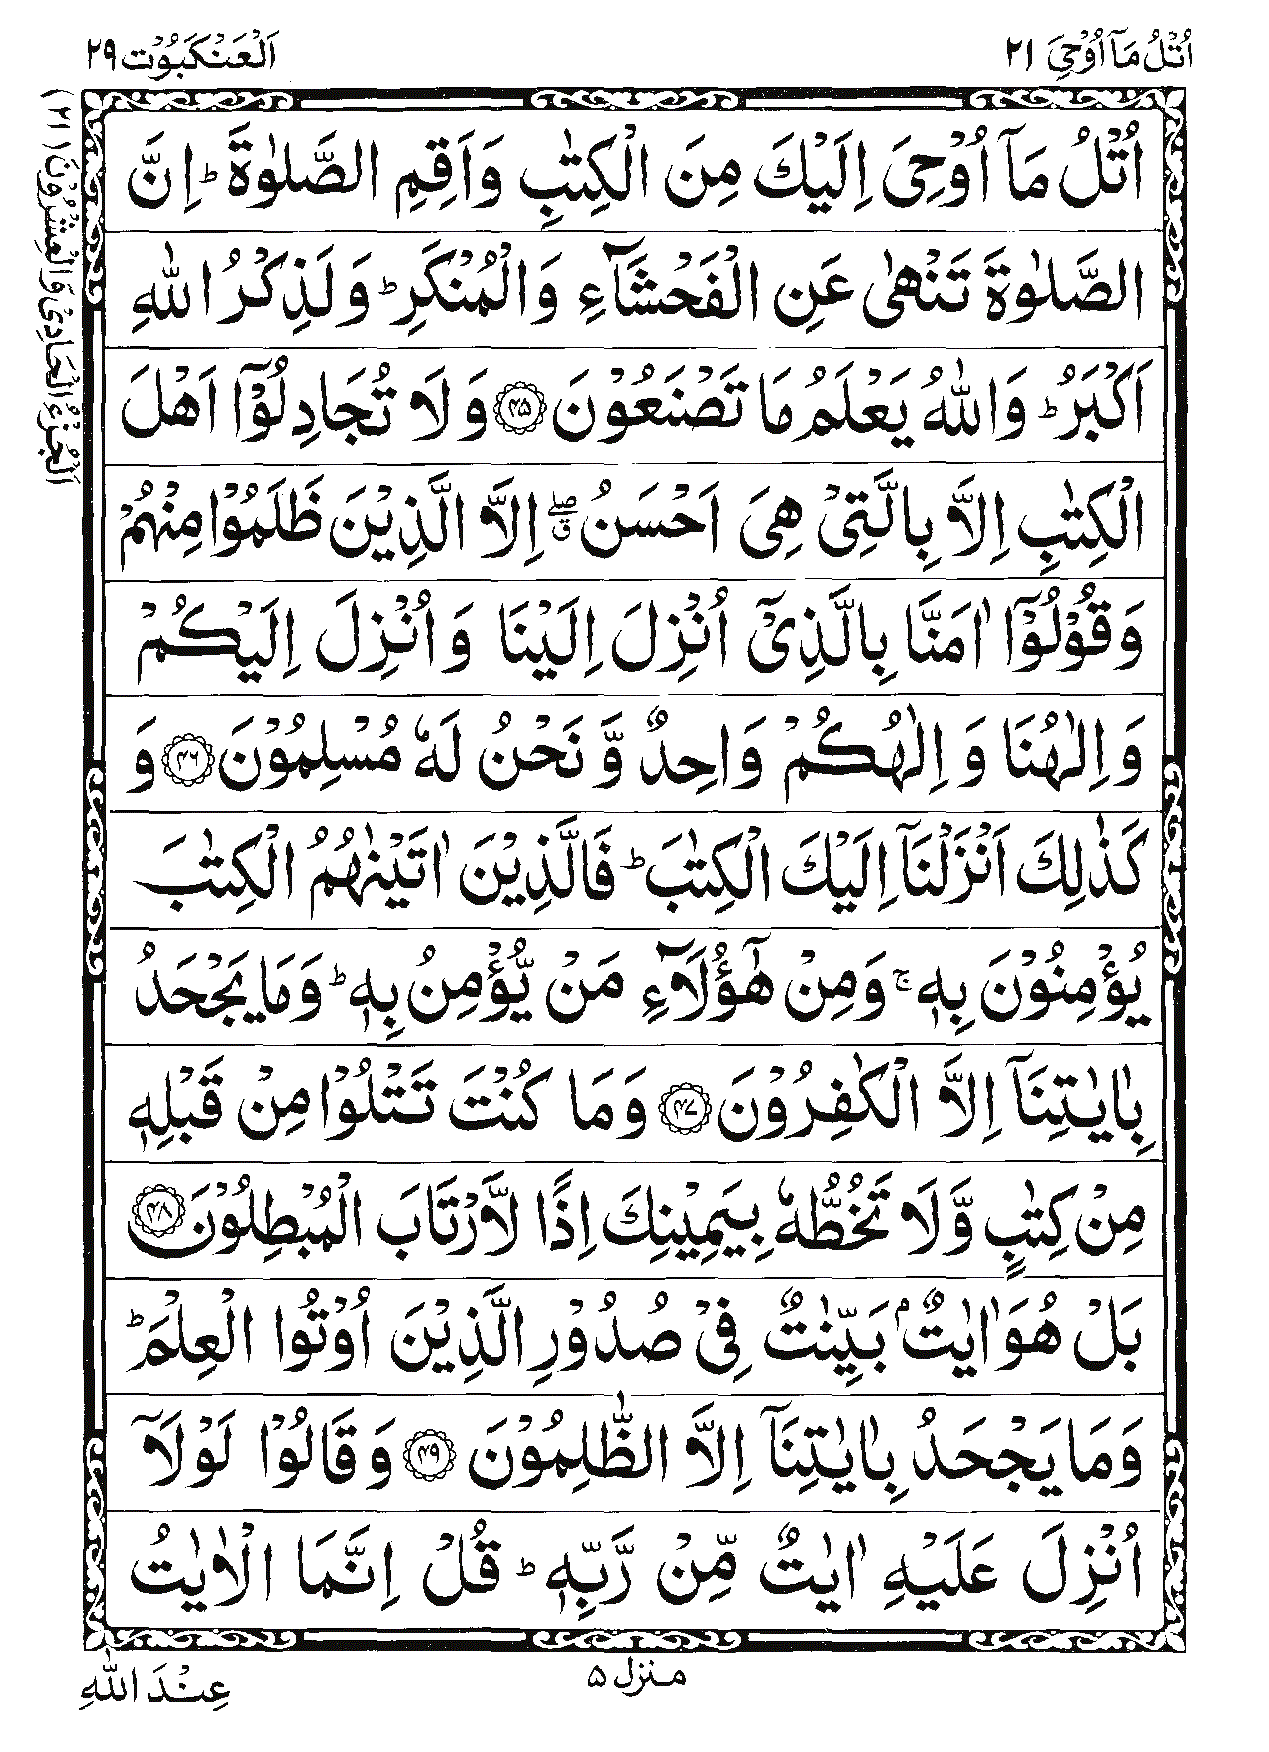 اُتْلُ مَاۤ اُوْحِیَ ٢١
اَلْعَنْكَبُوْت ٢٩
اَلْجُزْءُ الْحَادِیْ وَالْعِشْرُوْنَ (٢١)
اُتْلُ مَاۤ اُوْحِیَ اِلَیْكَ مِنَ الْكِتٰبِ وَاَقِمِ الصَّلٰوةَ ؕ اِنَّ
الصَّلٰوةَ تَنْهٰی عَنِ الْفَحْشَآءِ وَالْمُنْكَرِ ؕ وَلَذِكْرُ اللّٰهِ
اَكْبَرُ ؕ وَاللّٰهُ یَعْلَمُ مَا تَصْنَعُوْنَ ﴿۴۵﴾ وَلَا تُجَادِلُوْۤا اَهْلَ
الْكِتٰبِ اِلَّا بِالَّتِیْ هِیَ اَحْسَنُ ۖۗ اِلَّا الَّذِیْنَ ظَلَمُوْا مِنْهُمْ
وَقُوْلُوْۤا اٰمَنَّا بِالَّذِیْۤ اُنْزِلَ اِلَیْنَا وَاُنْزِلَ اِلَیْكُمْ
وَاِلٰهُنَا وَاِلٰهُكُمْ وَاحِدٌ وَّنَحْنُ لَهٗ مُسْلِمُوْنَ ﴿۴۶﴾ وَ
كَذٰلِكَ اَنْزَلْنَاۤ اِلَیْكَ الْكِتٰبَ ؕ فَالَّذِیْنَ اٰتَیْنٰهُمُ الْكِتٰبَ
یُؤْمِنُوْنَ بِهٖ ۚ وَمِنْ هٰۤؤُلَآءِ مَنْ یُّؤْمِنُ بِهٖ ؕ وَمَا یَجْحَدُ
بِاٰیٰتِنَاۤ اِلَّا الْكٰفِرُوْنَ ﴿۴۷﴾ وَمَا كُنْتَ تَتْلُوْا مِنْ قَبْلِهٖ
مِنْ كِتٰبٍ وَّلَا تَخُطُّهٗ بِیَمِیْنِكَ اِذًا لَّارْتَابَ الْمُبْطِلُوْنَ ﴿۴۸﴾
بَلْ هُوَ اٰیٰتٌۢ بَیِّنٰتٌ فِیْ صُدُوْرِ الَّذِیْنَ اُوْتُوا الْعِلْمَ ؕ
وَمَا یَجْحَدُ بِاٰیٰتِنَاۤ اِلَّا الظّٰلِمُوْنَ ﴿۴۹﴾ وَقَالُوْا لَوْلَاۤ
اُنْزِلَ عَلَیْهِ اٰیٰتٌ مِّنْ رَّبِّهٖ ؕ قُلْ اِنَّمَا الْاٰیٰتُ
منزل ۵
عِنْدَ اللّٰهِ